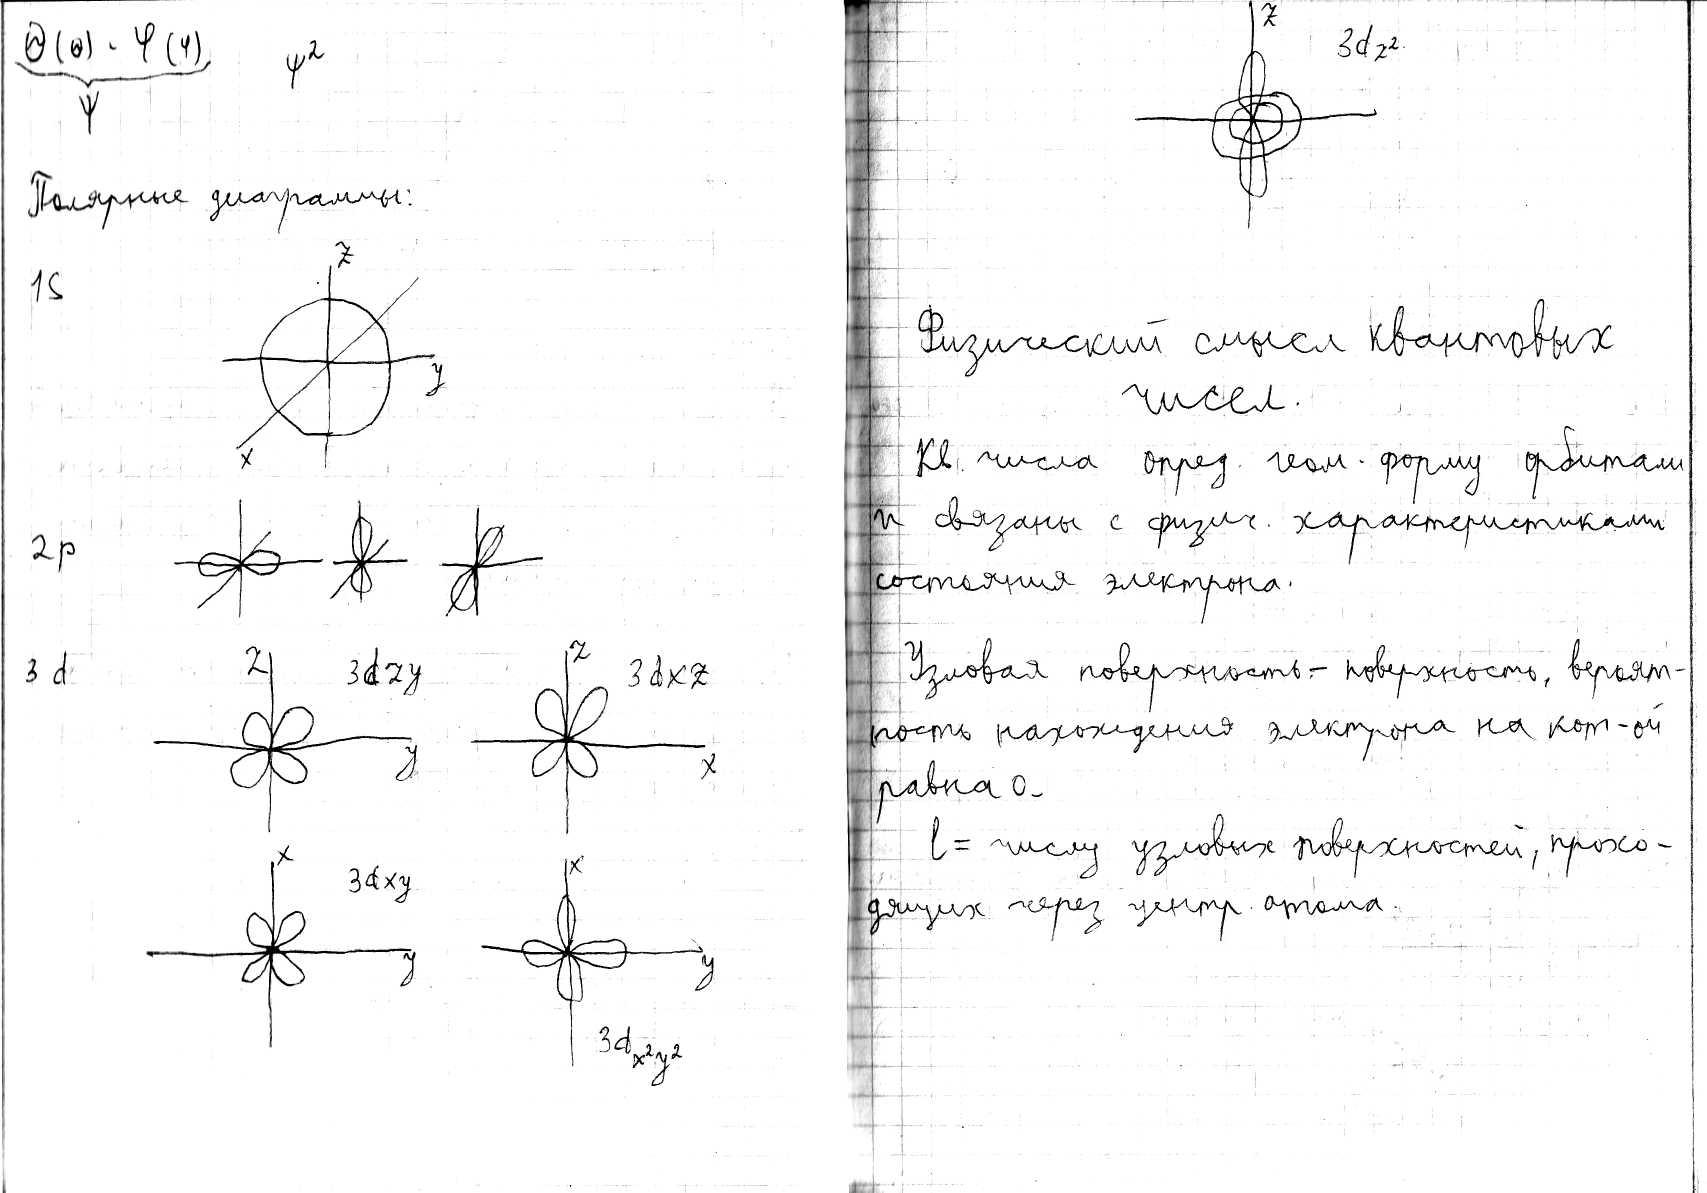 Θ(θ) · φ(φ)
ψ
ψ²
Полярные диаграммы:
1S
z
y
x
2p
3d
z
3dzy
y
z
3dxz
x
x
3dxy
y
x
y
3dx²y²
z
3dz²
Физический смысл квантовых
чисел.
Кв. числа опред. геом. форму орбитали
и связаны с физич. характеристиками
состояния электрона.
Узловая поверхность – поверхность, вероят-
ность нахождения электрона на кот-ой
равна 0.
l = числу узловых поверхностей, прохо-
дящих через центр. атома.